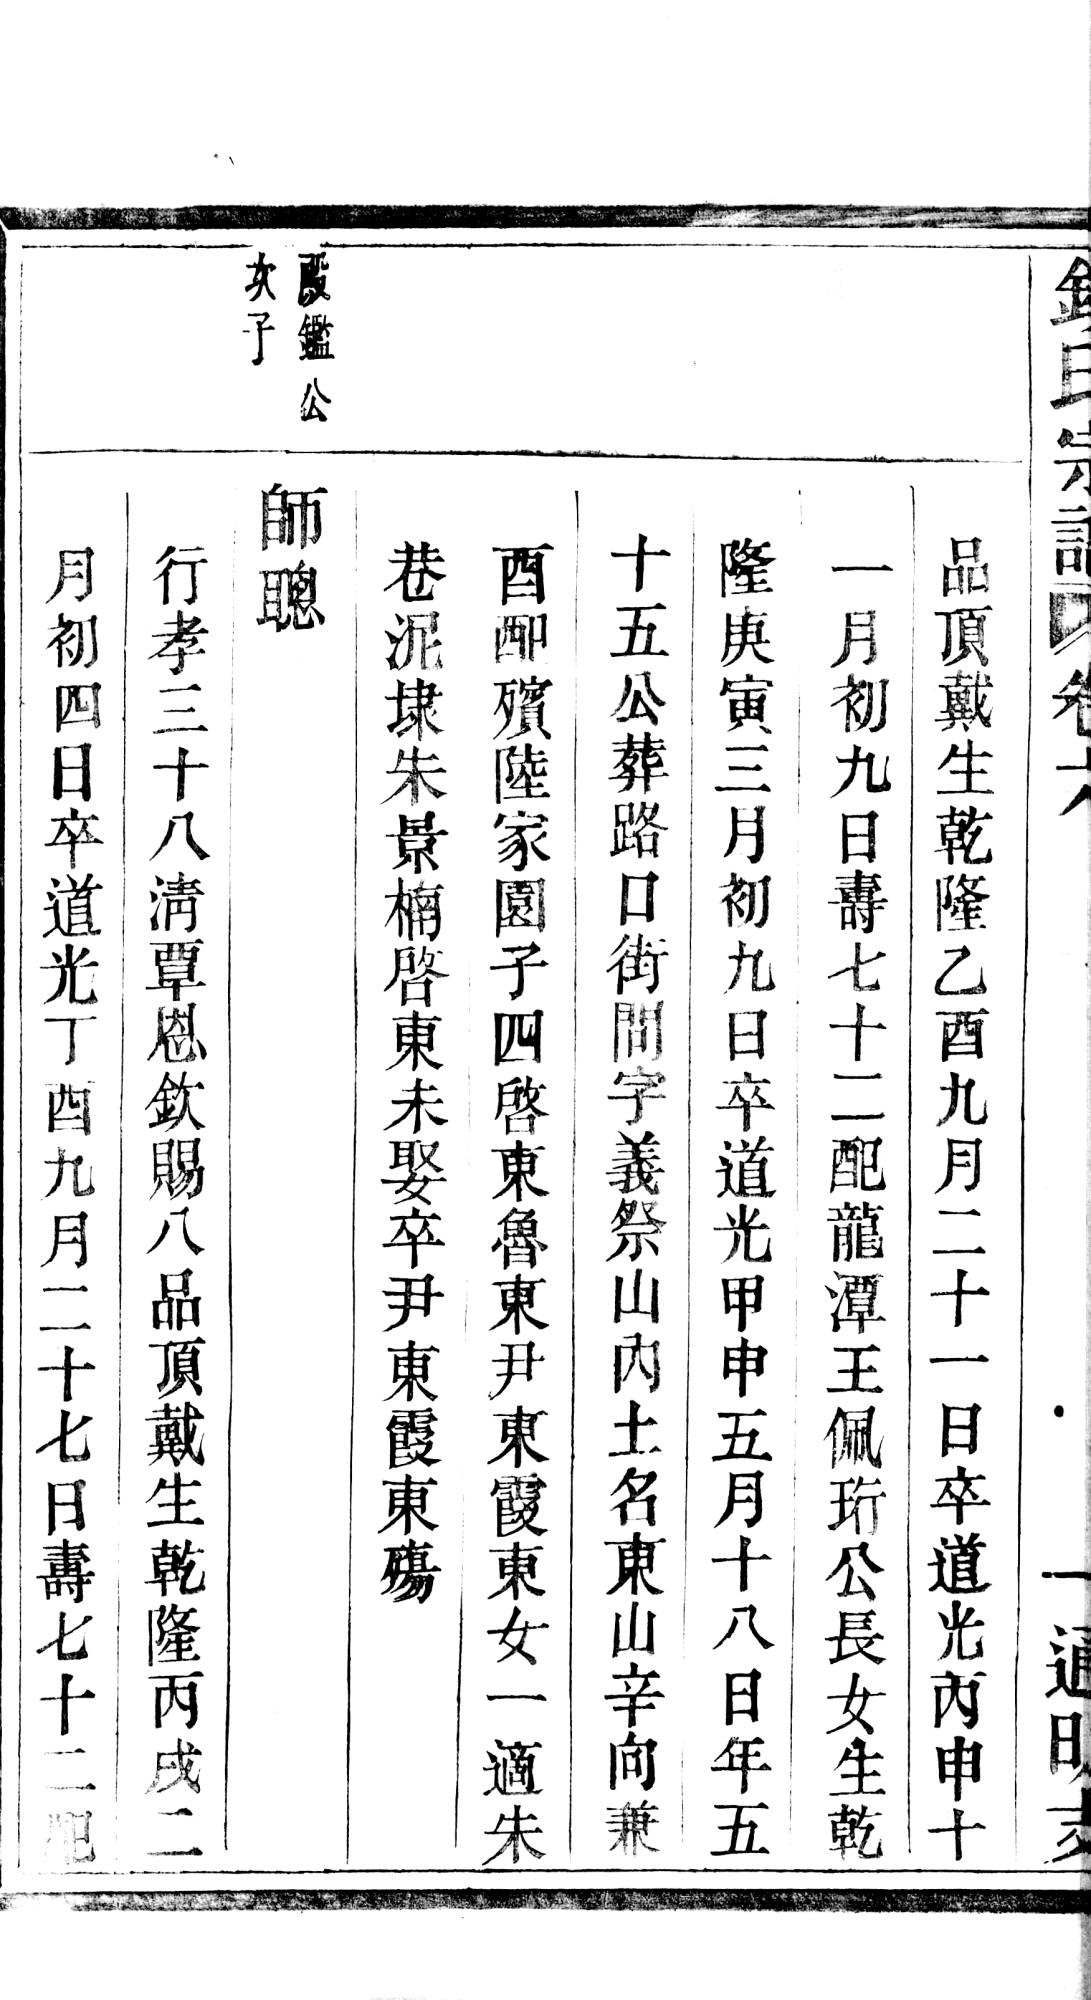 品頂戴生乾隆乙酉九月二十一日卒道光丙申十
一月初九日壽七十二配龍潭王佩珩公長女生乾
隆庚寅三月初九日卒道光甲申五月十八日年五
十五公葬路口街問字義祭山內土名東山辛向兼
酉卽殯陸家園子四啓東魯東尹東霞東女一適朱
巷泥埭朱景楠啓東未娶卒尹東霞東殤
殿鑑公
次子
師聰
行孝三十八淸覃恩欽賜八品頂戴生乾隆丙戌二
月初四日卒道光丁酉九月二十七日壽七十二配